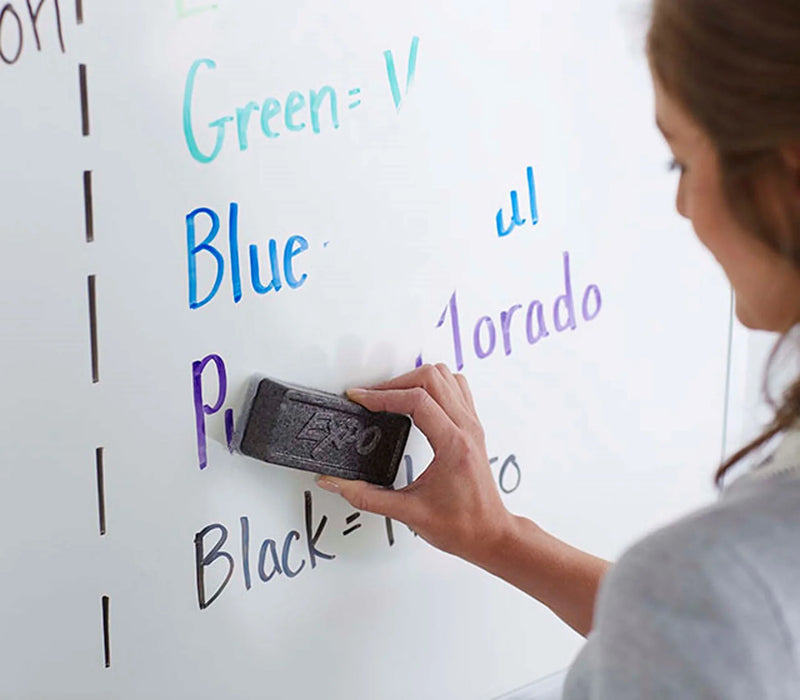 on
Green = V
Blue ul
lorado
EXPO
Black =